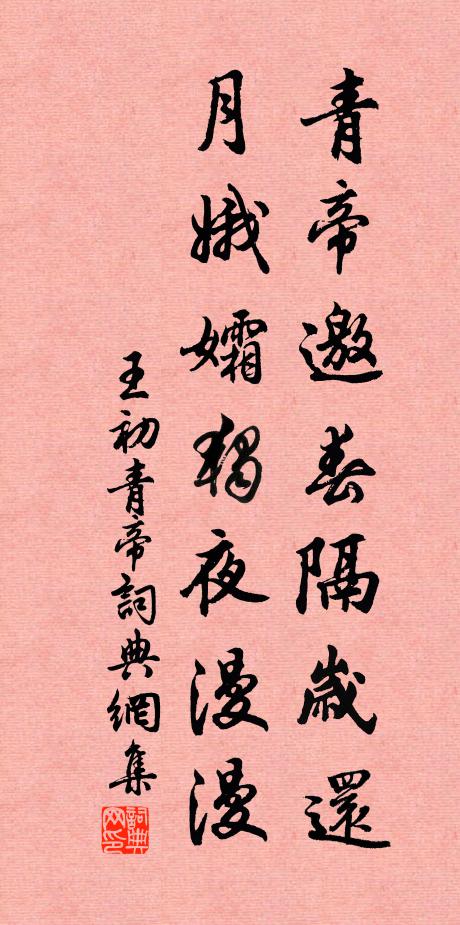 青帝邀春隔歲還
月娥孀獨夜漫漫
王初青帝詞典網集
詞典网印